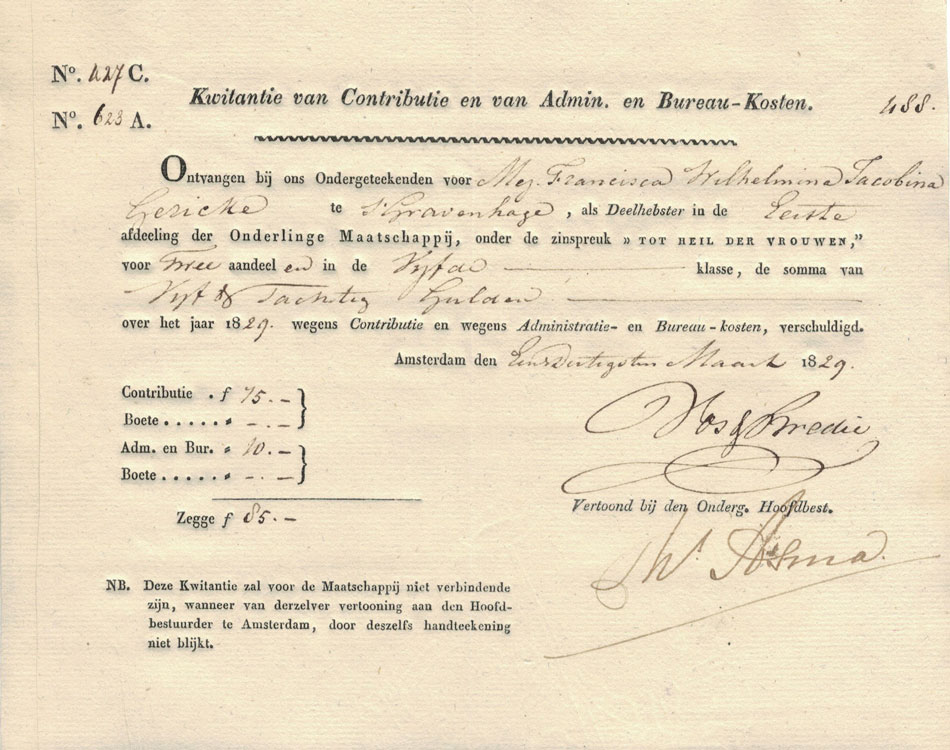 Nº. 427 C.
Kwitantie van Contributie en van Admin. en Bureau-Kosten. 488.
Nº. 623 A.
Ontvangen bij ons Ondergeteekenden voor Mej. Francisca Wilhelmina Jacobina
Gericke te s'Gravenhage, als Deelhebster in de Eerste
afdeeling der Onderlinge Maatschappij, onder de zinspreuk » TOT HEIL DER VROUWEN,"
voor Twee aandeel en in de Vijfde klasse, de somma van
Vijf & Tachtig Gulden
over het jaar 1829. wegens Contributie en wegens Administratie- en Bureau-kosten, verschuldigd.
Amsterdam den Eenendertigsten Maart 1829.
Contributie . f 75.-
Boete . . . . . . „ -.-
Adm. en Bur. „ 10.-
Boete . . . . . . „ -.-
Zegge f 85.-
Vertoond bij den Onderg. Hoofdbest.
NB. Deze Kwitantie zal voor de Maatschappij niet verbindende
zijn, wanneer van derzelver vertooning aan den Hoofd-
bestuurder te Amsterdam, door deszelfs handteekening
niet blijkt.